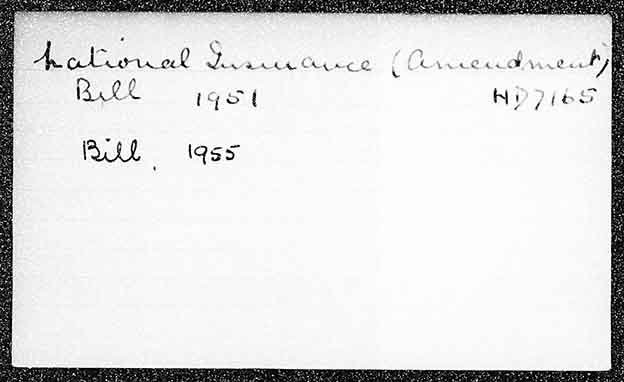 National Insurance (Amendment)
Bill 1951 HD7165
Bill, 1955